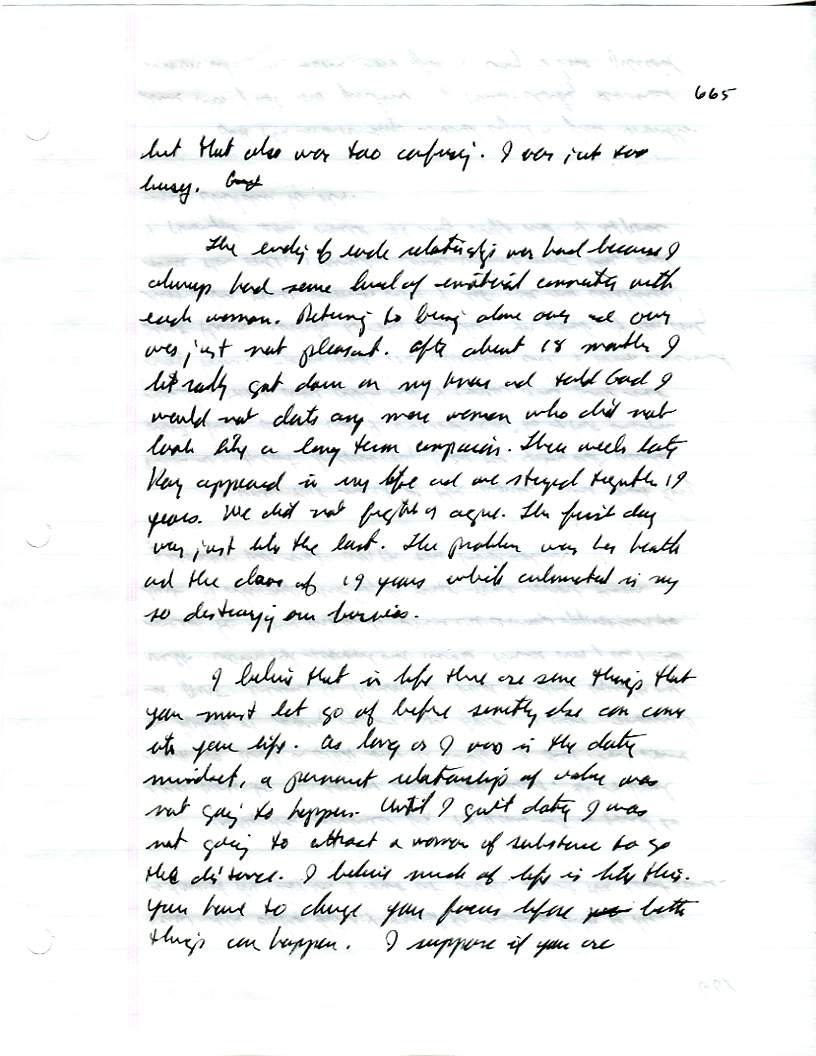 665
but that also was too confusing. I was just too
busy.
The ending of each relationship was hard because I
always had some level of emotional connection with
each woman. Returning to being alone over and over
was just not pleasant. After about 18 months I
literally got down on my knees and told God I
would not date any more women who did not
look like a long term companion. Three weeks later
Kay appeared in my life and we stayed together 19
years. We did not fight or argue. The first day
was just like the last. The problem was her health
and the chaos of 19 years which culminated in my
so destroying our business.
I believe that in life there are some things that
you must let go of before something else can come
into your life. As long as I was in the dating
mindset, a permanent relationship of value was
not going to happen. Until I quit dating I was
not going to attract a woman of substance to go
the distance. I believe much of life is like this.
You have to change your focus before better
things can happen. I suppose if you are